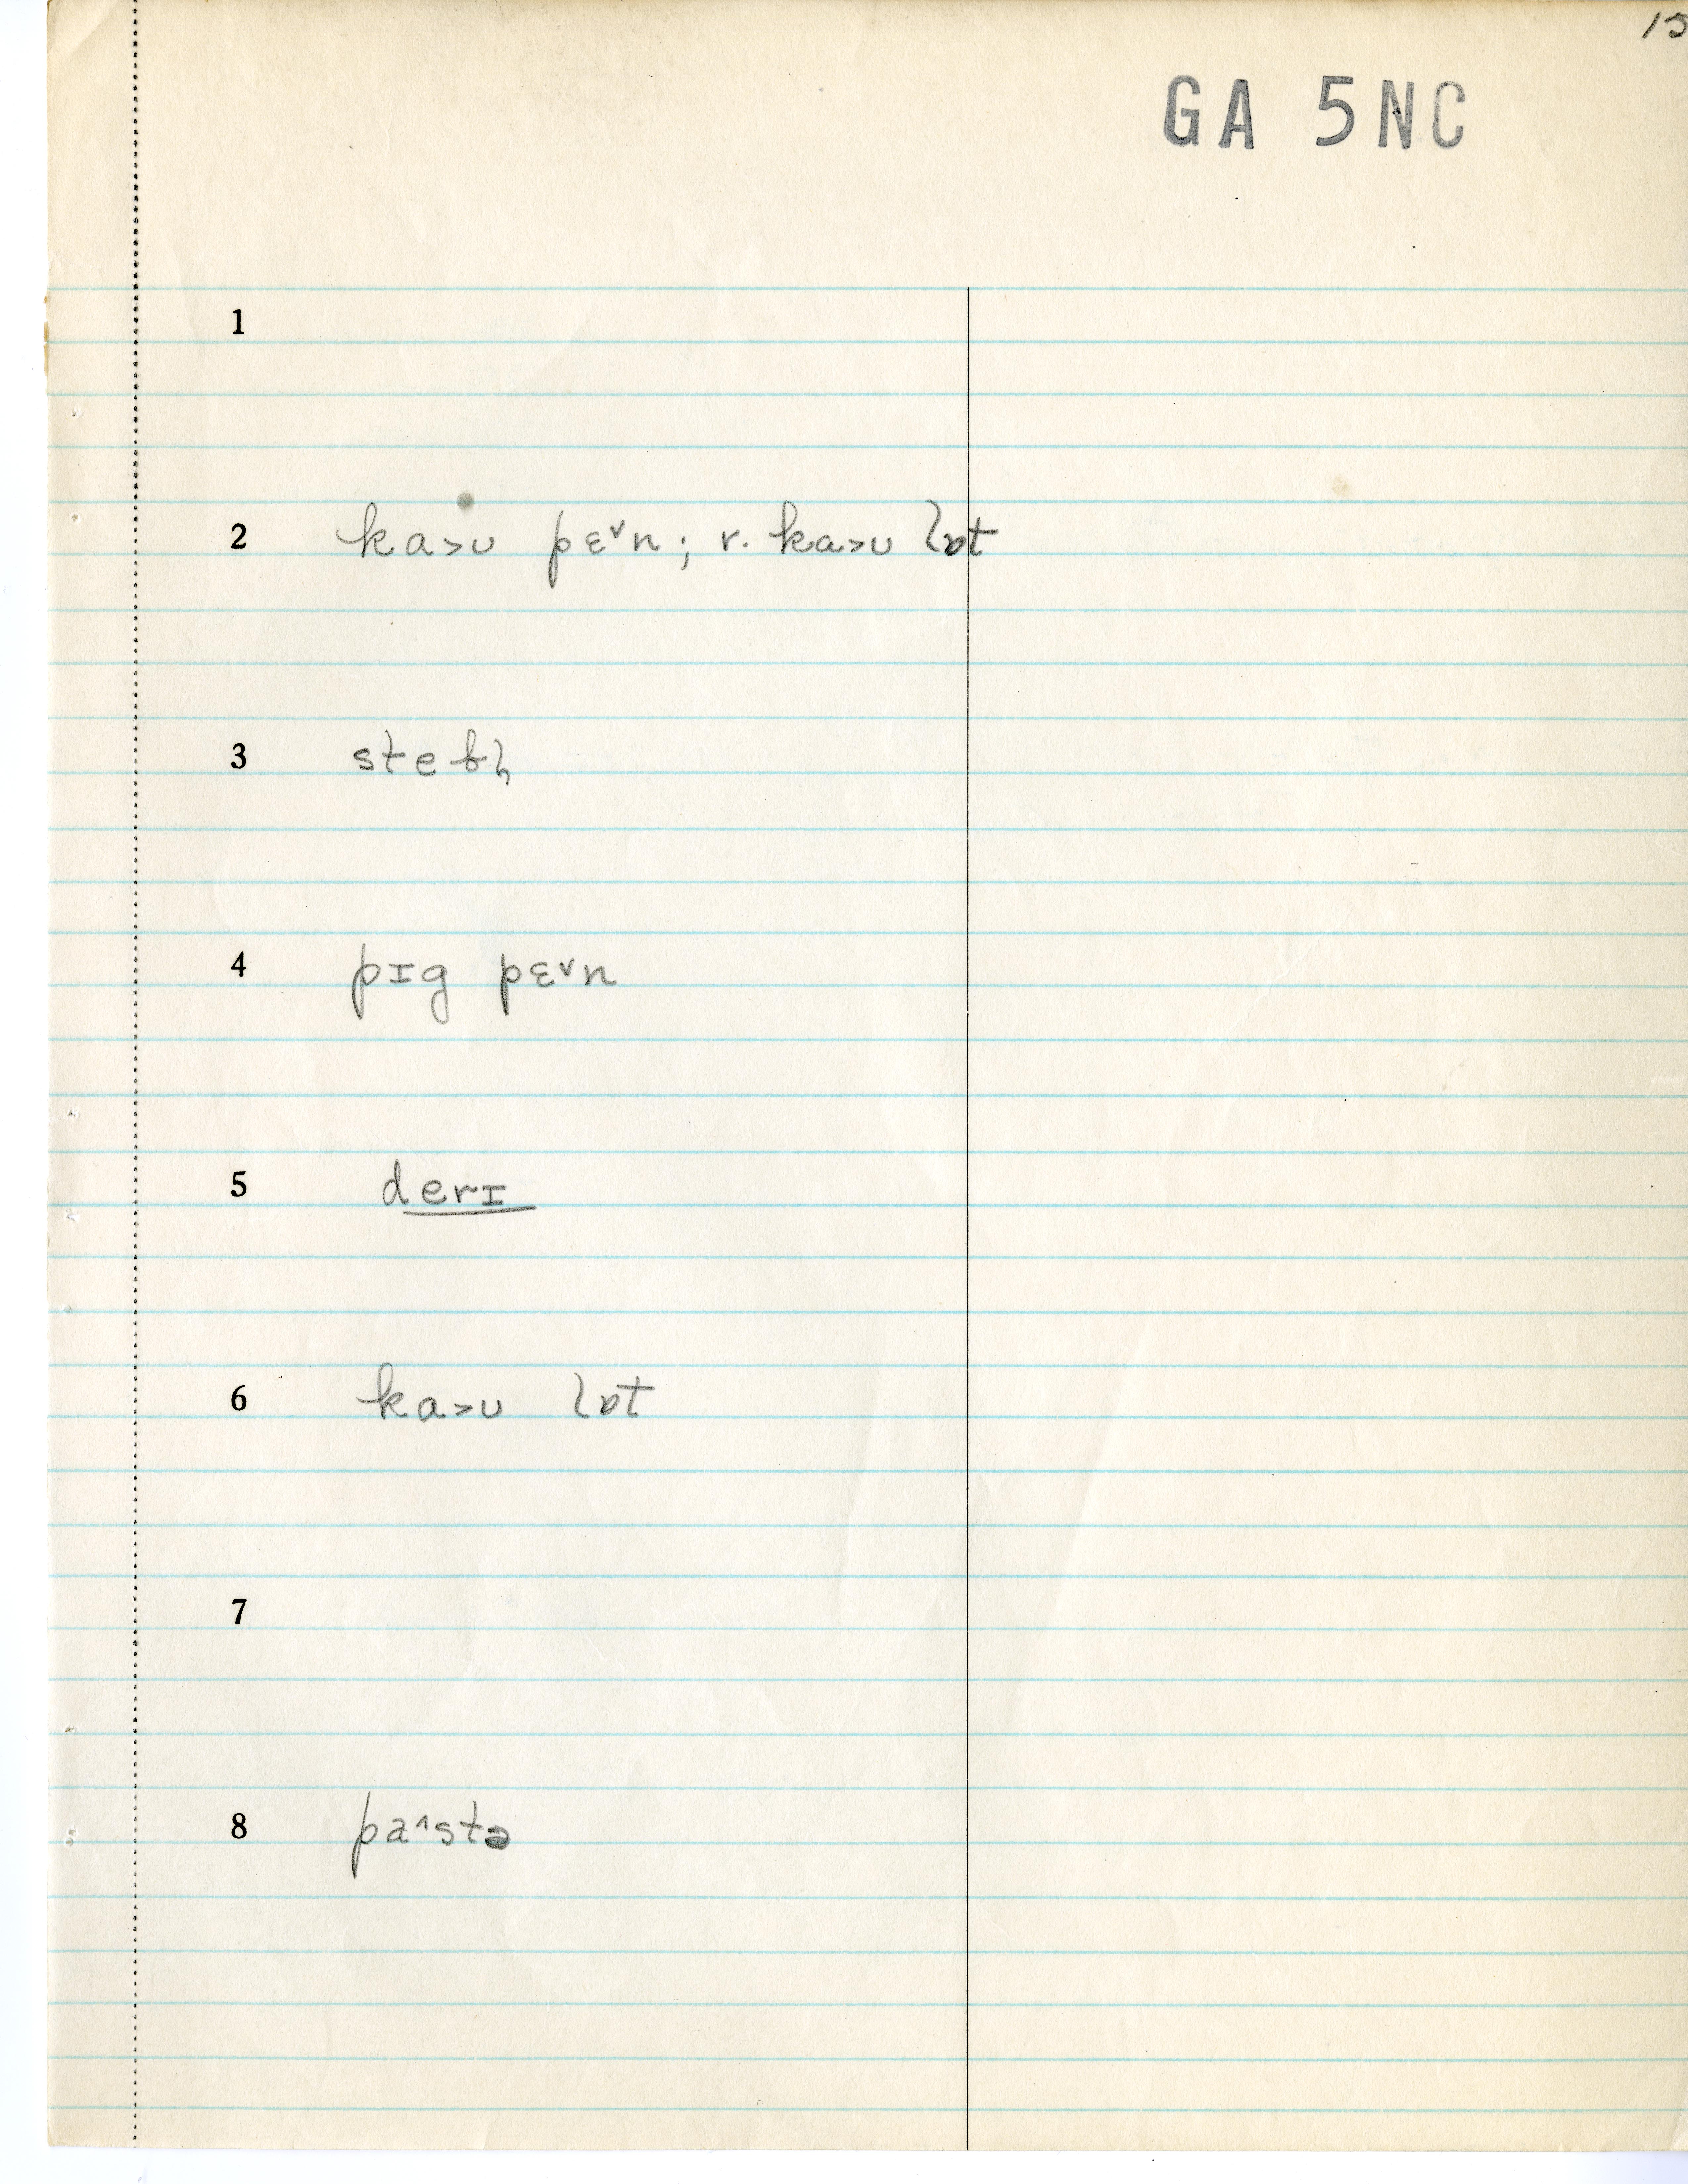 15
GA 5NC
1
2 ka>ʊ pɛ˅n; r. ka>ʊ lɒt
3 stebl̩
4 pɪg pɛ˅n
5 derɪ
6 ka>ʊ lɒt
7
8 pa˄stə